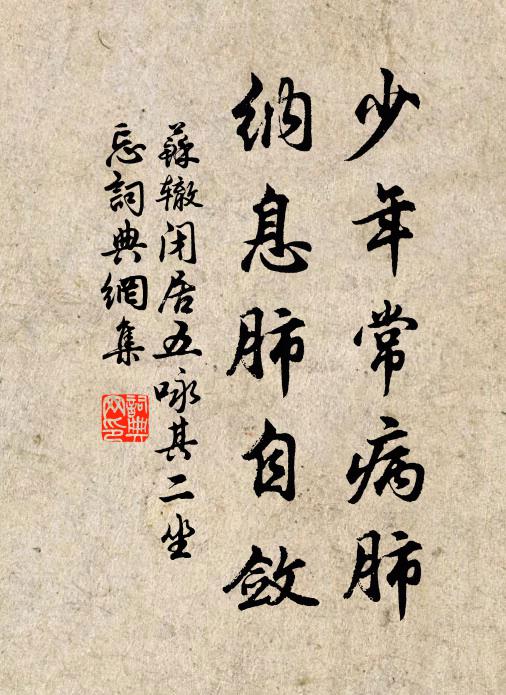 少年常病肺
纳息肺自敛
苏辙闭居五咏其二坐
忘詞典網集
詞典网印